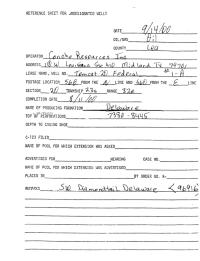 REFERENCE SHEET FOR UNDESIGNATED WELLS
DATE 9/14/00
COUNTY Lea
OPERATOR Concho Resources Inc
ADDRESS 110 W. Louisiana Ste 410 Midland Tx 79701
LEASE NAME, WELL NO. Tomcat 20 Federal #1-A
FOOTAGE LOCATION 560 FROM THE N LINE AND 660 FROM THE E LINE
SECTION 20 TOWNSHIP 23s RANGE 32e
COMPLETION DATE 8/11/00
NAME OF PRODUCING FORMATION Delaware
TOP OF PERFORATIONS 7380-8445
DEPTH TO CASING SHOE
C-123 FILED
NAME OF POOL FOR WHICH EXTENSION WAS ASKED
ADVERTISED FOR HEARING CASE NO.
NAME OF POOL FOR WHICH EXTENSION WAS ADVERTISED
PLACED IN BY ORDER NO. R-
REMARKS SW Diamondtail Delaware <96916